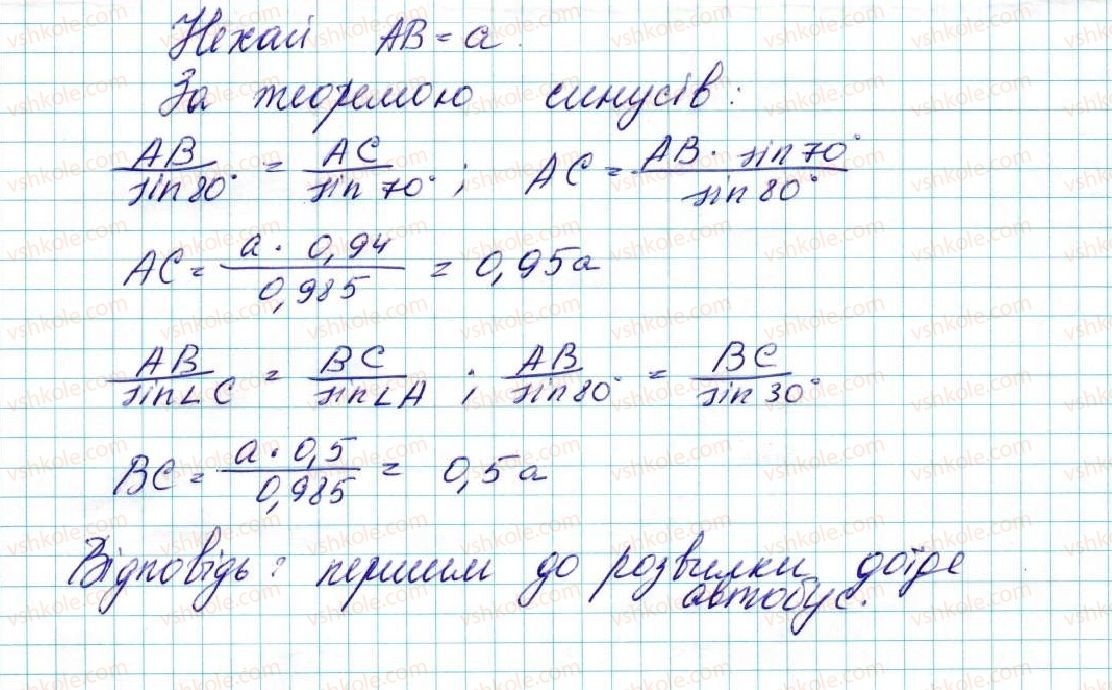 Нехай AB = a.
За теоремою синусів:
AB/sin 80° = AC/sin 70° ; AC = AB · sin 70°/sin 80°
AC = a · 0,94/0,985 = 0,95a
AB/sin∠C = BC/sin∠A ; AB/sin 80° = BC/sin 30°
BC = a · 0,5/0,985 = 0,5a
Відповідь: першим до розвилки доїде
автобус.